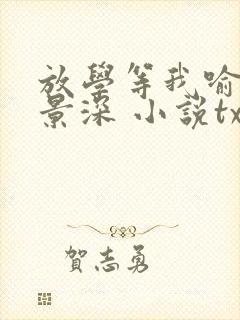 放學等我喻
景深 小説tx
賀志勇